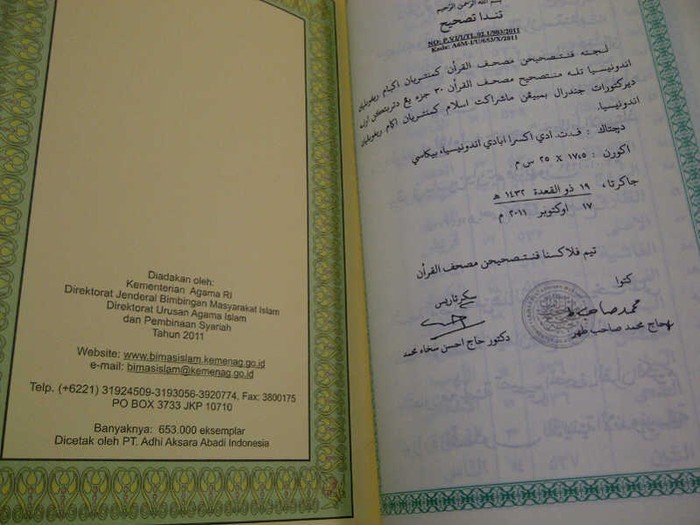 Diadakan oleh:
Kementerian Agama RI
Direktorat Jenderal Bimbingan Masyarakat Islam
Direktorat Urusan Agama Islam
dan Pembinaan Syariah
Tahun 2011
Website: www.bimasislam.kemenag.go.id
e-mail: bimasislam@kemenag.go.id
Telp. (+6221) 31924509-3193056-3920774, Fax: 3800175
PO BOX 3733 JKP 10710
Banyaknya: 653.000 eksemplar
Dicetak oleh PT. Adhi Aksara Abadi Indonesia
بسم الله الرحمن الرحيم
تندا تصحيح
لجنه فنتصحيحن مصحف القرأن كمنتريان اݢام
اندونيسيا تله منتصحيح مصحف القرأن ٣٠ جزء يڠ دتربتكن اوله
ديركتورات جندرال بمبيڠن ماشراكت اسلام كمنتريان اݢام
اندونيسيا.
دچتاك : ف.ت. ادي اكسرا ابادي اندونيسيا، بيكاسي
اكورن : ١٧،٥ x ٢٥ س م
جاكرتا، ١٩ ذو القعدة ١٤٣٢ هـ
١٧ اوكتوبر ٢٠١١ م
تيم فلاكسنا فنتصحيحن مصحف القرأن
كتوا
سكريتاريس
حاج محمد صاحب طهر
دكتور حاج احسن سخاء محمد